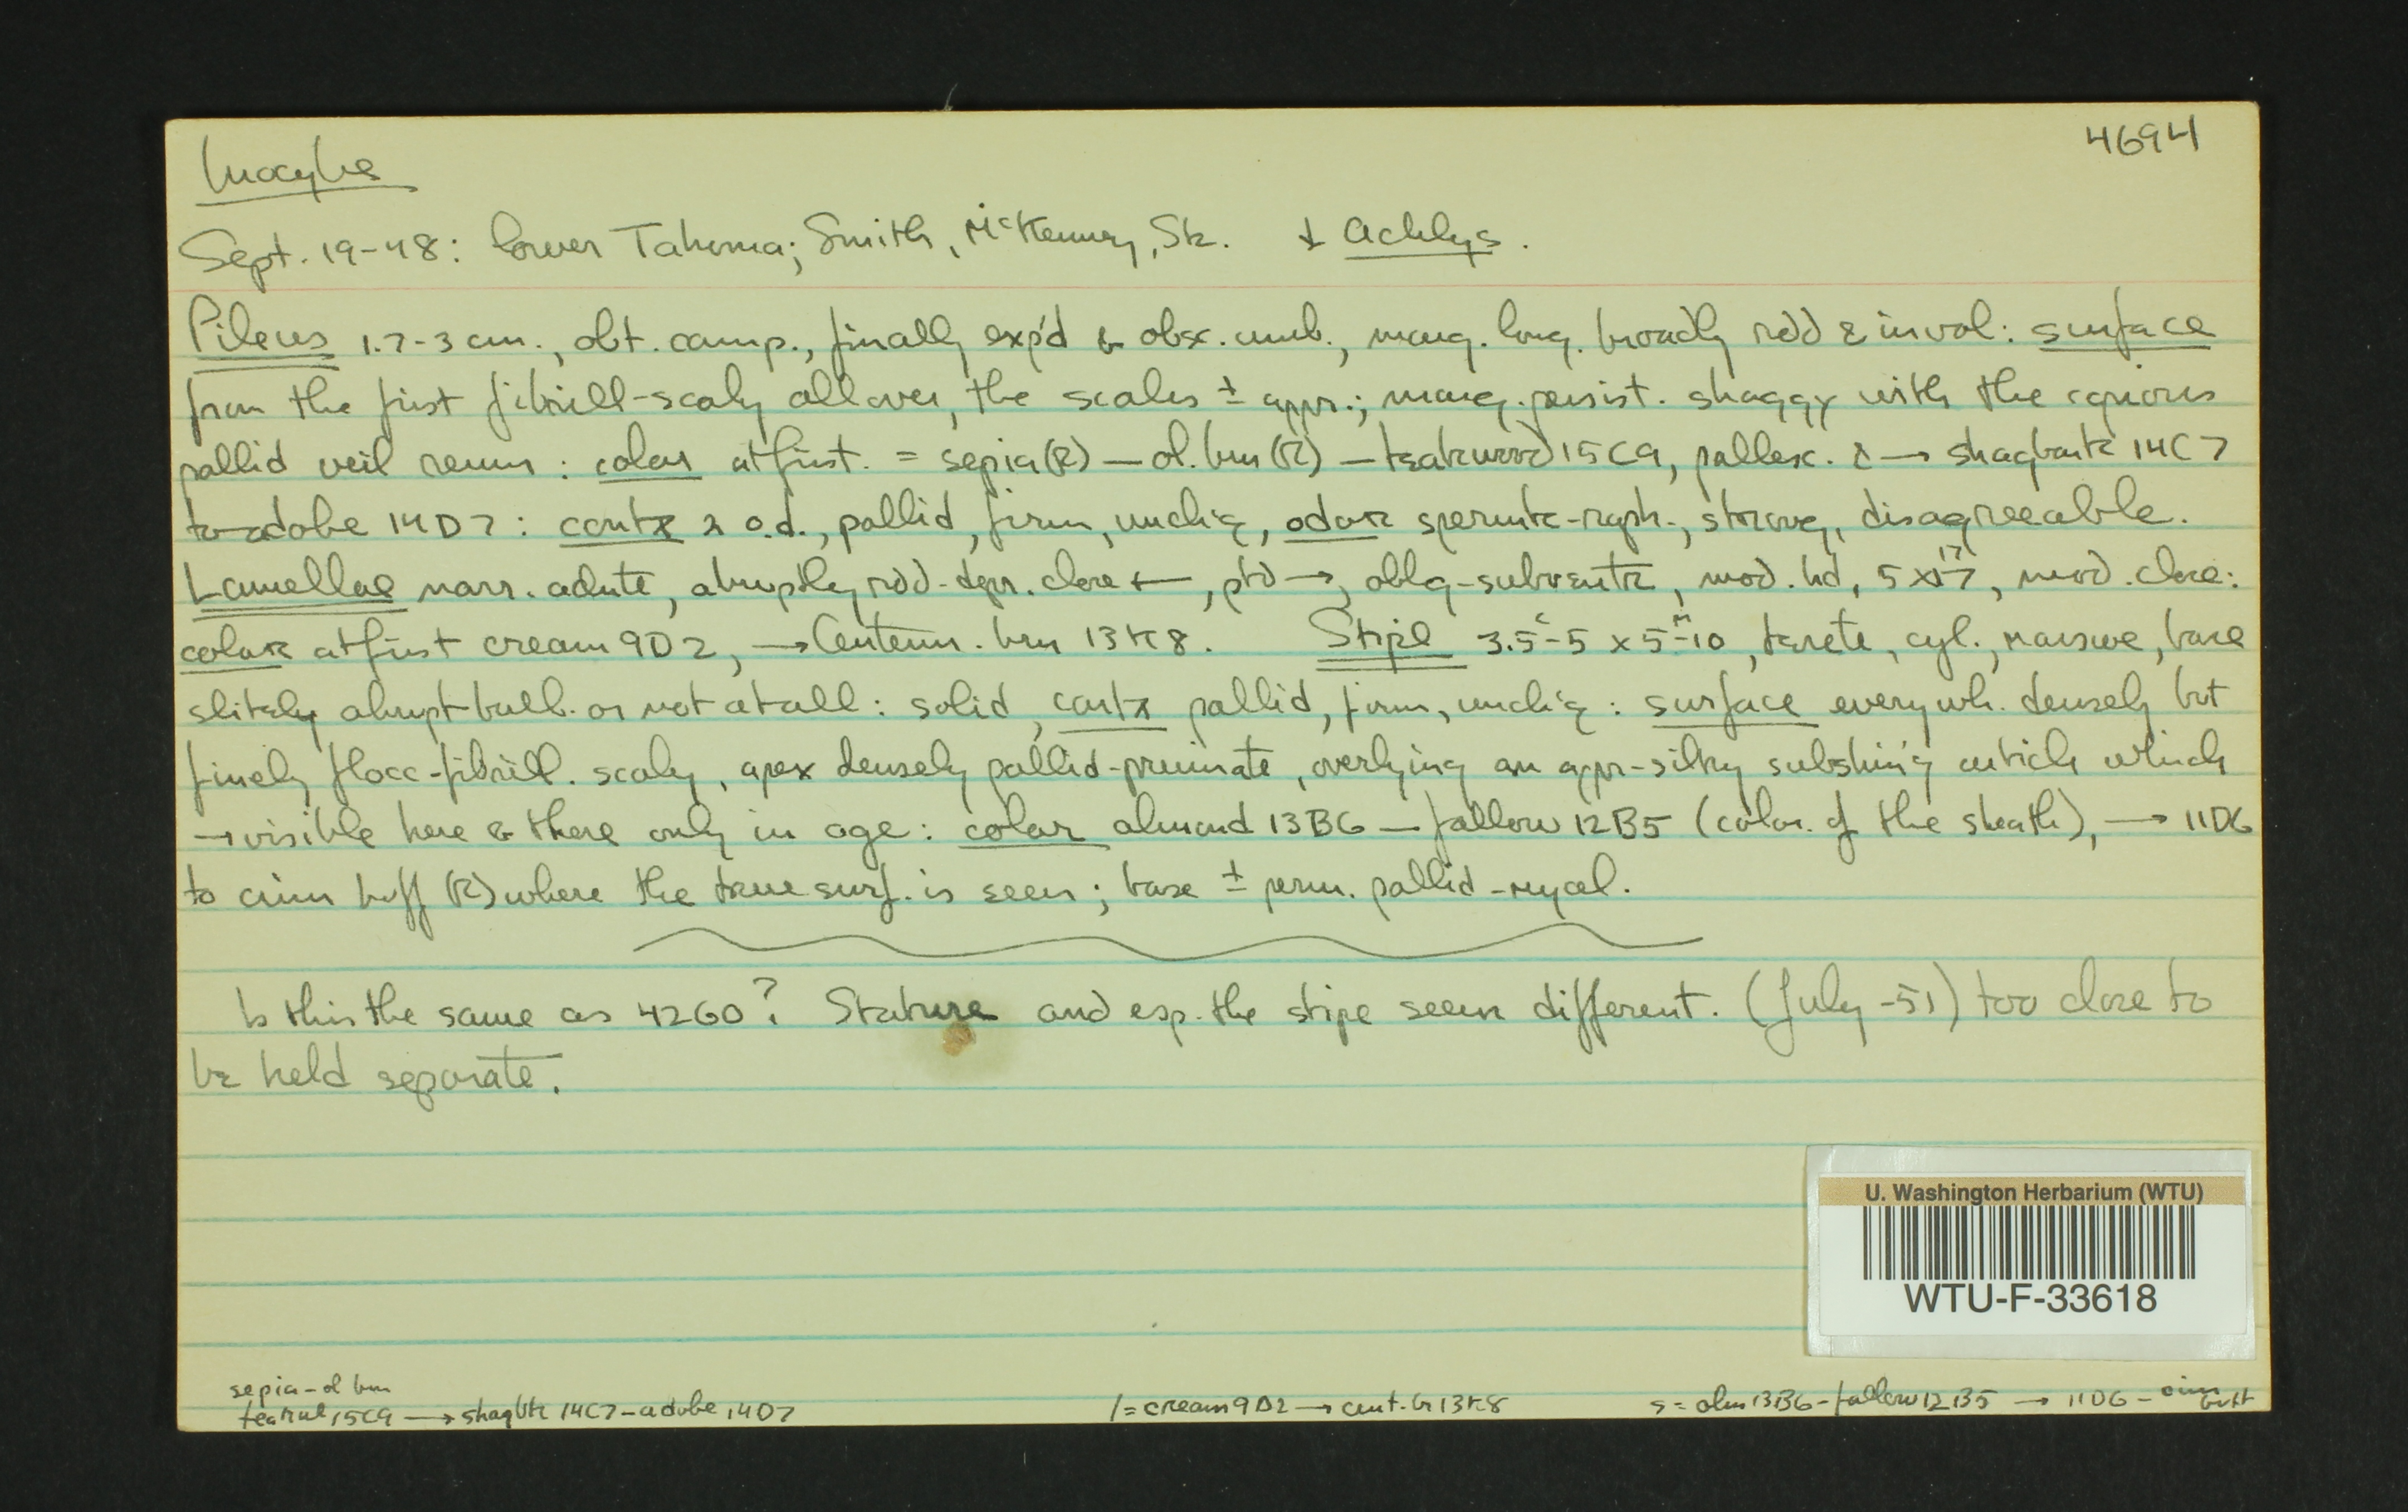 Inocybe
4694
Sept. 19-48: lower Tahoma; Smith, McKenny, Sk. ↓ Achlys.
Pileus 1.7-3 cm., obt. camp., finally exp'd & obsc. umb., marg. long. broadly rdd & invol: surface
from the first fibrill-scaly all over, the scales ± appr.; marg. persist. shaggy with the copious
pallid veil remn: color at first = sepia (R) — ol. brn (R) — teakwood 15C9, pallesc. & → shagbark 14C7
to adobe 14D7: contx o.d., pallid, firm, unch'g, odor spermtc-raph., strong, disagreeable.
Lamellae narr. adnte, abruptly rdd-depr. close ←, ptd →, oblq-subventr, mod. bd, 5 x 17, mod. close:
color at first cream 9D2, → Centenn. brn 13K8. Stipe 3.5c-5 x 5m-10, terete, cyl., massive, base
slitely abrupt bulb. or not at all: solid, contx pallid, firm, unch'g: surface everywh. densely but
finely flocc-fibrill. scaly, apex densely pallid-pruinate, overlying an appr-silky subshin'g cuticle which
→ visible here & there only in age: color almond 13B6 — fallow 12B5 (color of the sheath), → 11D6
to cinn buff (R) where the true surf. is seen; base ± perm. pallid-mycel.
Is this the same as 4260? Stature and esp. the stipe seem different. (July -51) too close to
be held separate.
U. Washington Herbarium (WTU)
WTU-F-33618
sepia-ol brn
15C9 → shagbk 14C7-adobe 14D7
l = cream 9D2 → cent. br 13K8
s = alm 13B6-fallow 12B5 → 11D6 - cinn buff